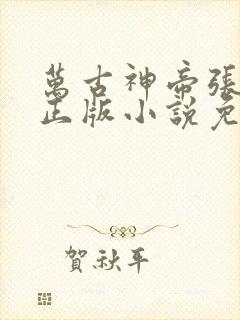 萬古神帝張
正版小說免
賀秋平